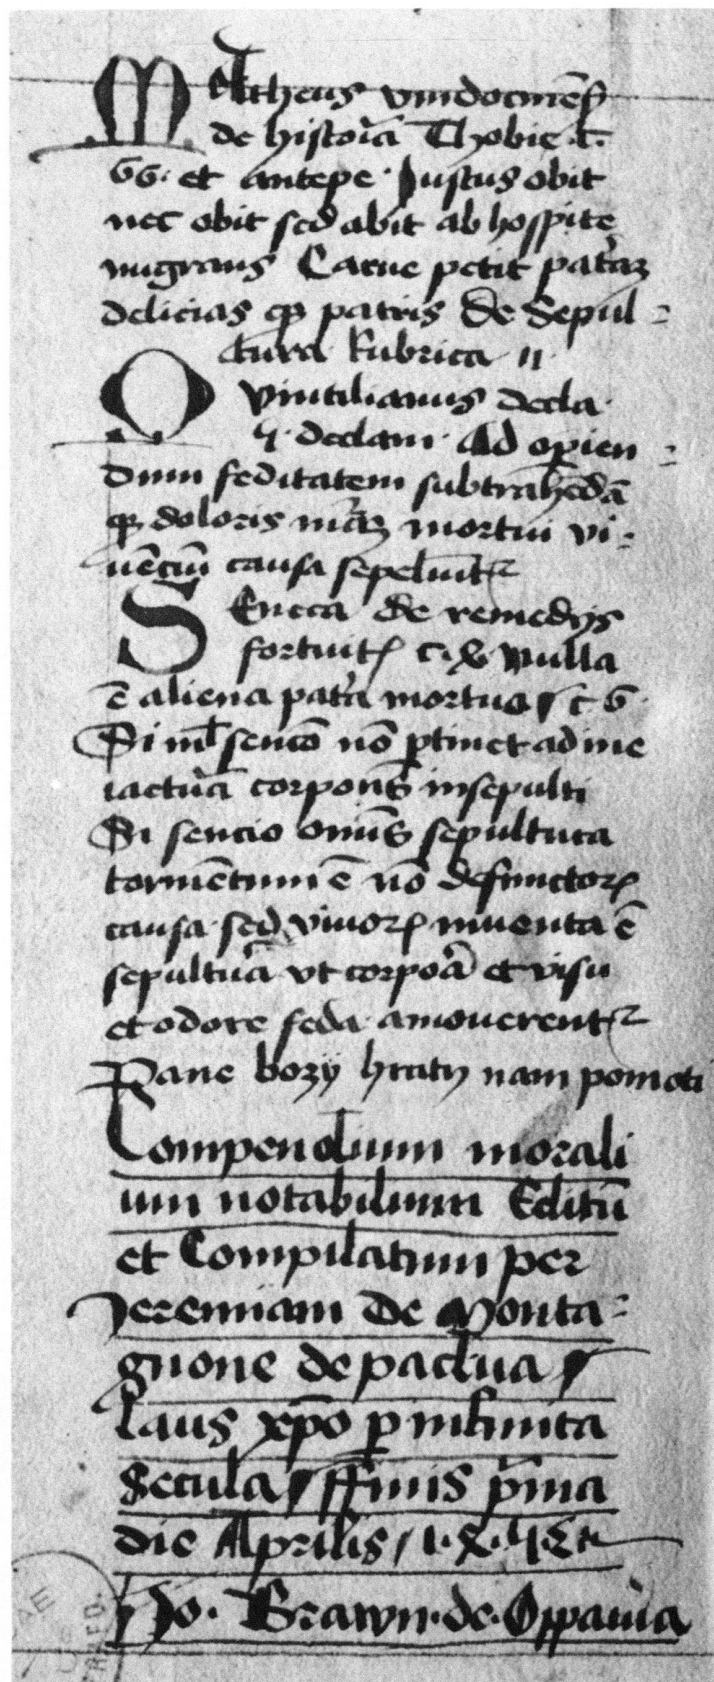 MAtheus vindocinēs̄
de historia Thobie c.
66. et antepe. Justus obit
nec obit sed abit ab hospite
migrans Carne petit patrāꝫ
delicias qꝫ patris de Sepul=
tura Rubrica ii.
QVintilianus decla.
declam. Ad opien=
dum feditatem subtrahēdā
qꝫ doloris mortui vi=
uēciū causa sepeliūtᷣ
SEneca de remedijs
fortuitꝝ c. x. Nulla
ē aliena patria mortuo / c 6.
Si nil sencio nō ꝑtinet ad me
iactura corporis insepulti
Si sencio omīs sepultura
tormētum ē nō defunctorꝝ
causa sed viuorꝝ inuenta ē
sepultura vt corpora et visu
et odore feda amouerentᷣ
Pane bozy hraty nam pomoci
Compendium morali
um notabilium Editū
et Compilatum per
Jeremiam de Monta=
gnone de padua /
Laus xp̄o ꝑ infinita
Secula / ffinis prima
die Aprilis /
Jo. Brawn. de. Oppauia